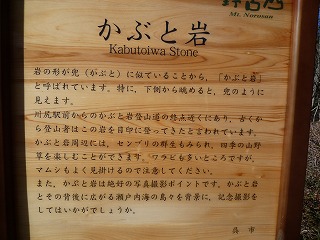 野呂山
Mt. Norosan
かぶと岩
Kabutoiwa Stone
岩の形が兜（かぶと）に似ていることから，「かぶと岩」
と呼ばれています。特に，下側から眺めると，兜のように
見えます。
川尻駅前からのかぶと岩登山道の終点近くにあり，古くか
ら登山者はこの岩を目印に登ってきたといわれています。
かぶと岩周辺には，センブリの群生もみられ，四季の山野
草を楽しむことができます。ワラビも多いところですが，
マムシもよく見掛けるので注意してください。
また，かぶと岩は絶好の写真撮影ポイントです。かぶと岩
とその背後に広がる瀬戸内海の島々を背景に，記念撮影を
してはいかがでしょうか。
呉市